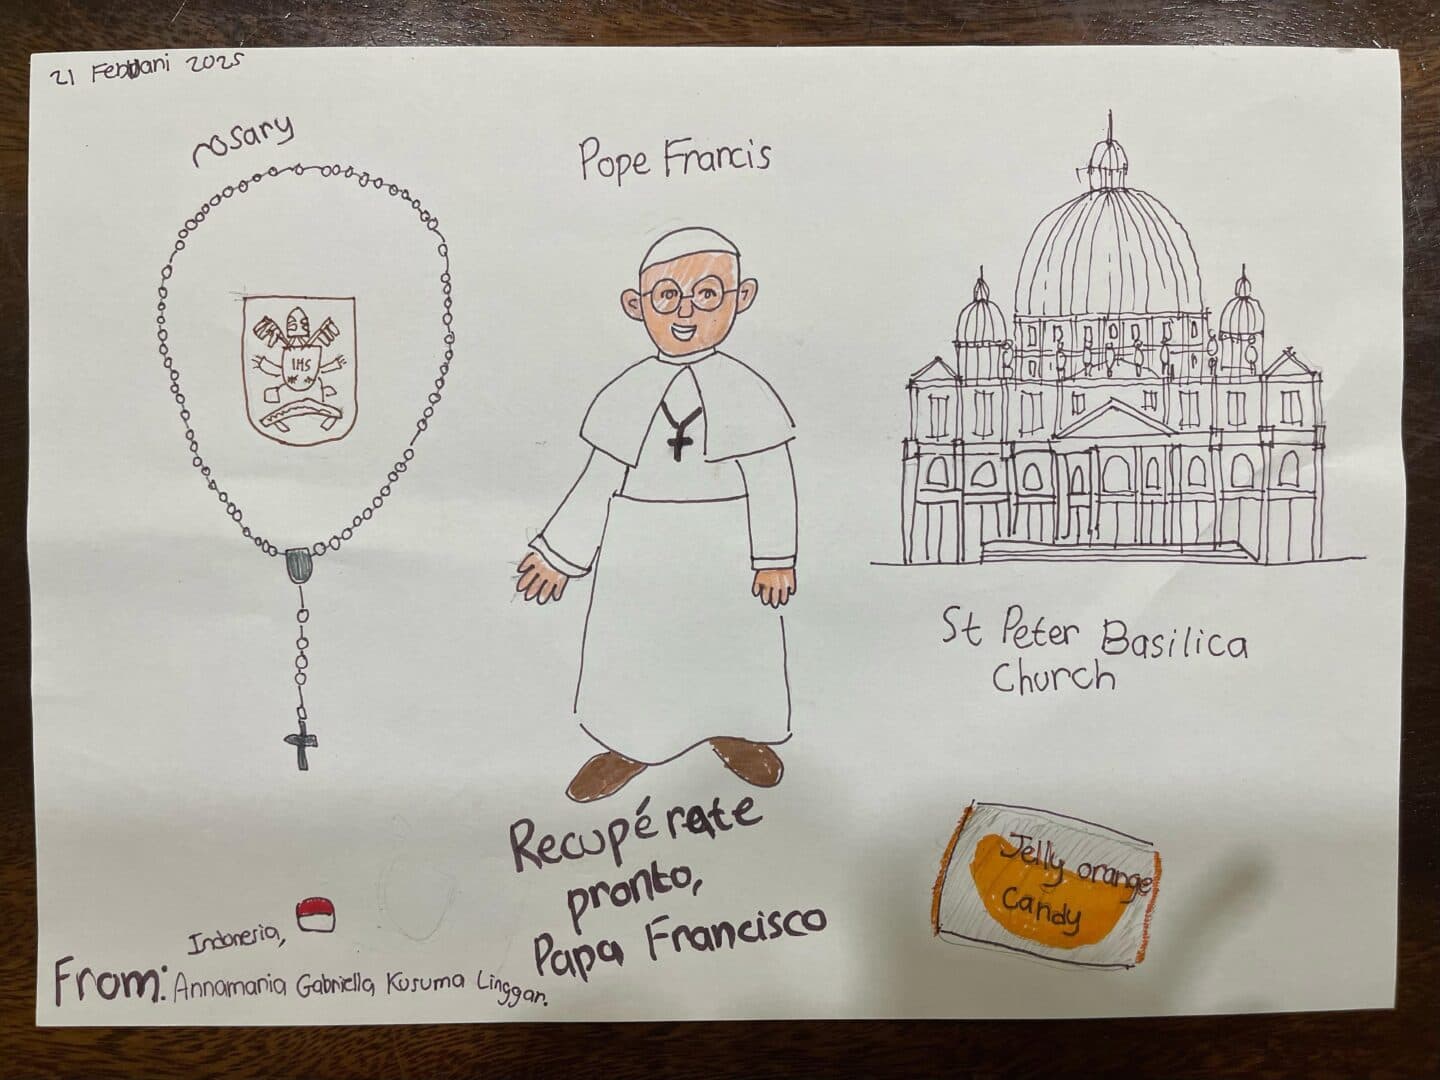 21 Februari 2025
rosary
IHS
Pope Francis
St Peter Basilica
Church
Recupérate
pronto,
Papa Francisco
Jelly orange
Candy
Indonesia,
From: Annamaria Gabriella Kusuma Linggar.